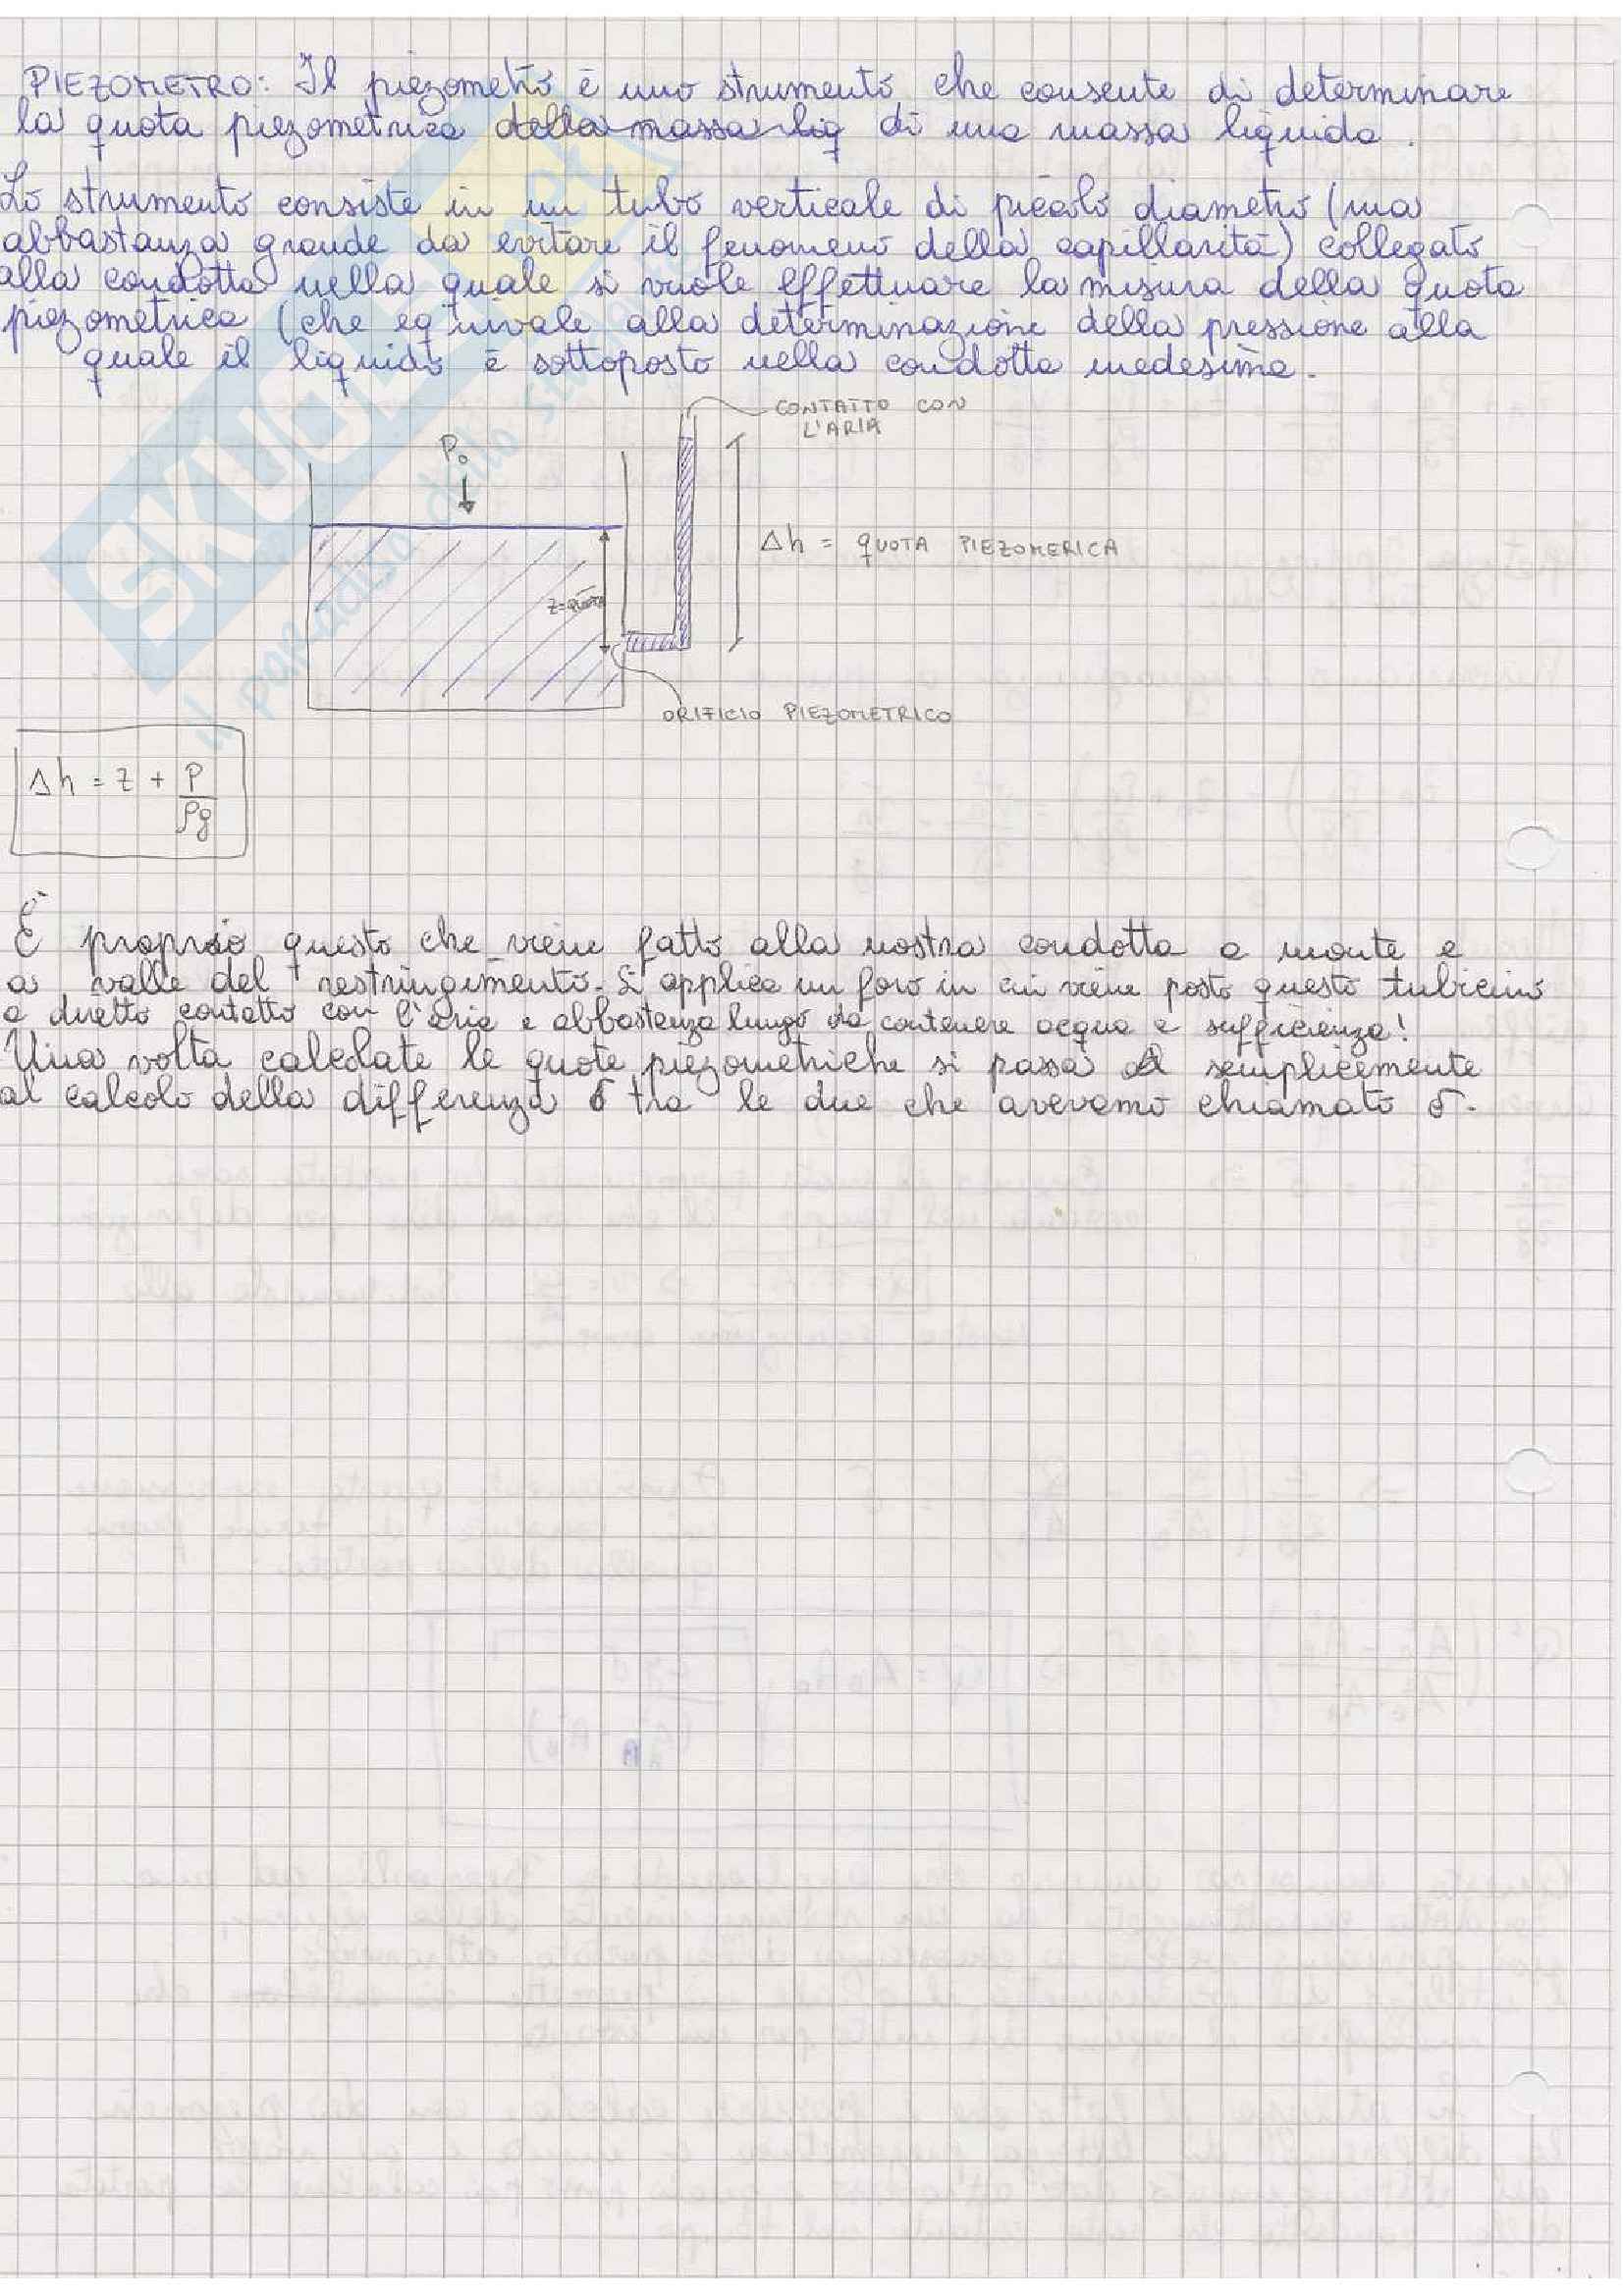 PIEZOMETRO: Il piezometro è uno strumento che consente di determinare
la quota piezometrica della massa liq di una massa liquida.
Lo strumento consiste in un tubo verticale di piccolo diametro (ma
abbastanza grande da evitare il fenomeno della capillarità) collegato
alla condotta nella quale si vuole effettuare la misura della quota
piezometrica (che equivale alla determinazione della pressione alla
quale il liquido è sottoposto nella condotta medesima.
CONTATTO CON
L'ARIA
P₀
Δh = QUOTA PIEZOMERICA
z=quota
ORIFICIO PIEZOMETRICO
Δh = z + P/ρg
È proprio questo che viene fatto alla nostra condotta a monte e
a valle del restringimento. Si applica un foro in cui viene posto questo tubicino
a diretto contatto con l'aria e abbastanza lungo da contenere acqua a sufficienza!
Una volta calcolate le quote piezometriche si passa semplicemente
al calcolo della differenza δ tra le due che avevamo chiamato δ.
SKUOLA.net
Il paradiso dello studente